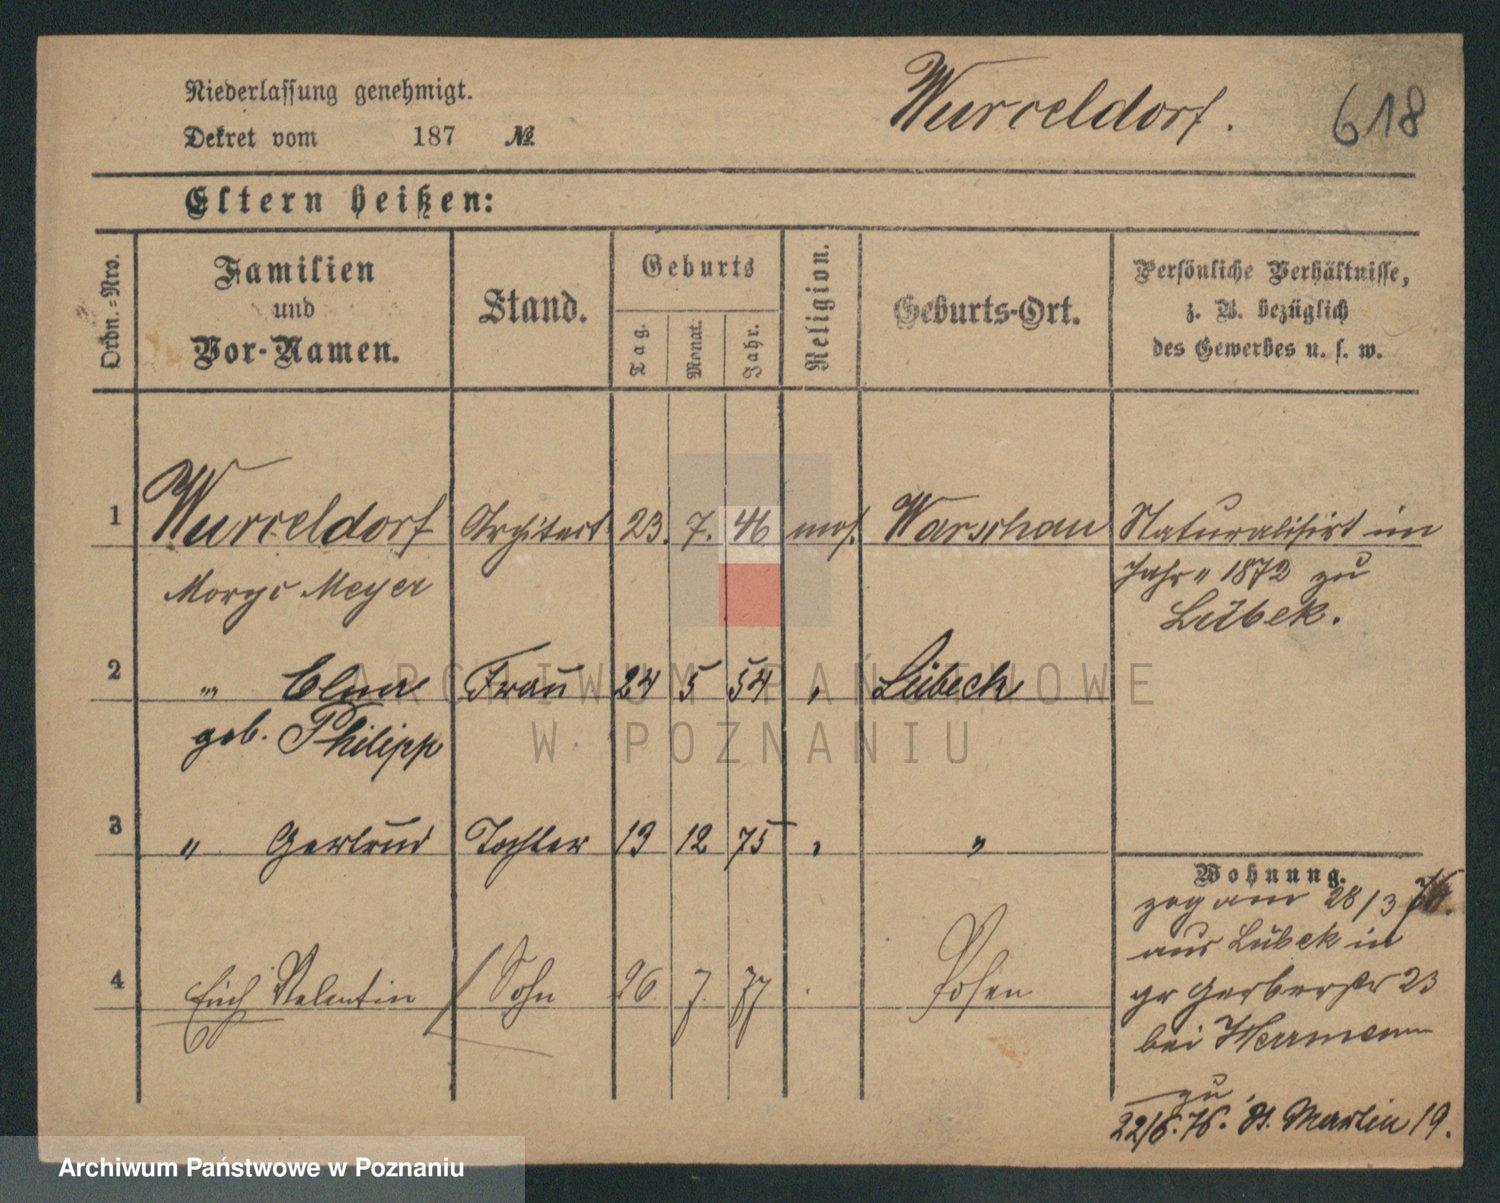 Niederlassung genehmigt.
Dekret vom 187 №
Wurceldorf.
618
Eltern heißen:
Ordn.=Nro.
Familien
und
Vor-Namen.
Stand.
Geburts
Tag.
Monat.
Jahr.
Religion.
Geburts-Ort.
Persönliche Verhältnisse,
z. B. bezüglich
des Gewerbes u. s. w.
1 Wurceldorf Architect 23. 7. 46 mos. Warschau Naturalisirt im
Meyer Jahr 1872 zu
Lübek.
2 " Elna Frau 24 5 54 " Lübeck
geb. Philipp
3 " Gertrud Tochter 19 12 75 " "
Wohnung.
zog am 28/3 76.
aus Lübek in
4 Erich Valentin Sohn 26 7. 77 Posen
gr Gerberstr 23
bei Hermann
zu
22/6. 76. St. Martin 19.
ARCHIWUM PAŃSTWOWE
W POZNANIU
Archiwum Państwowe w Poznaniu